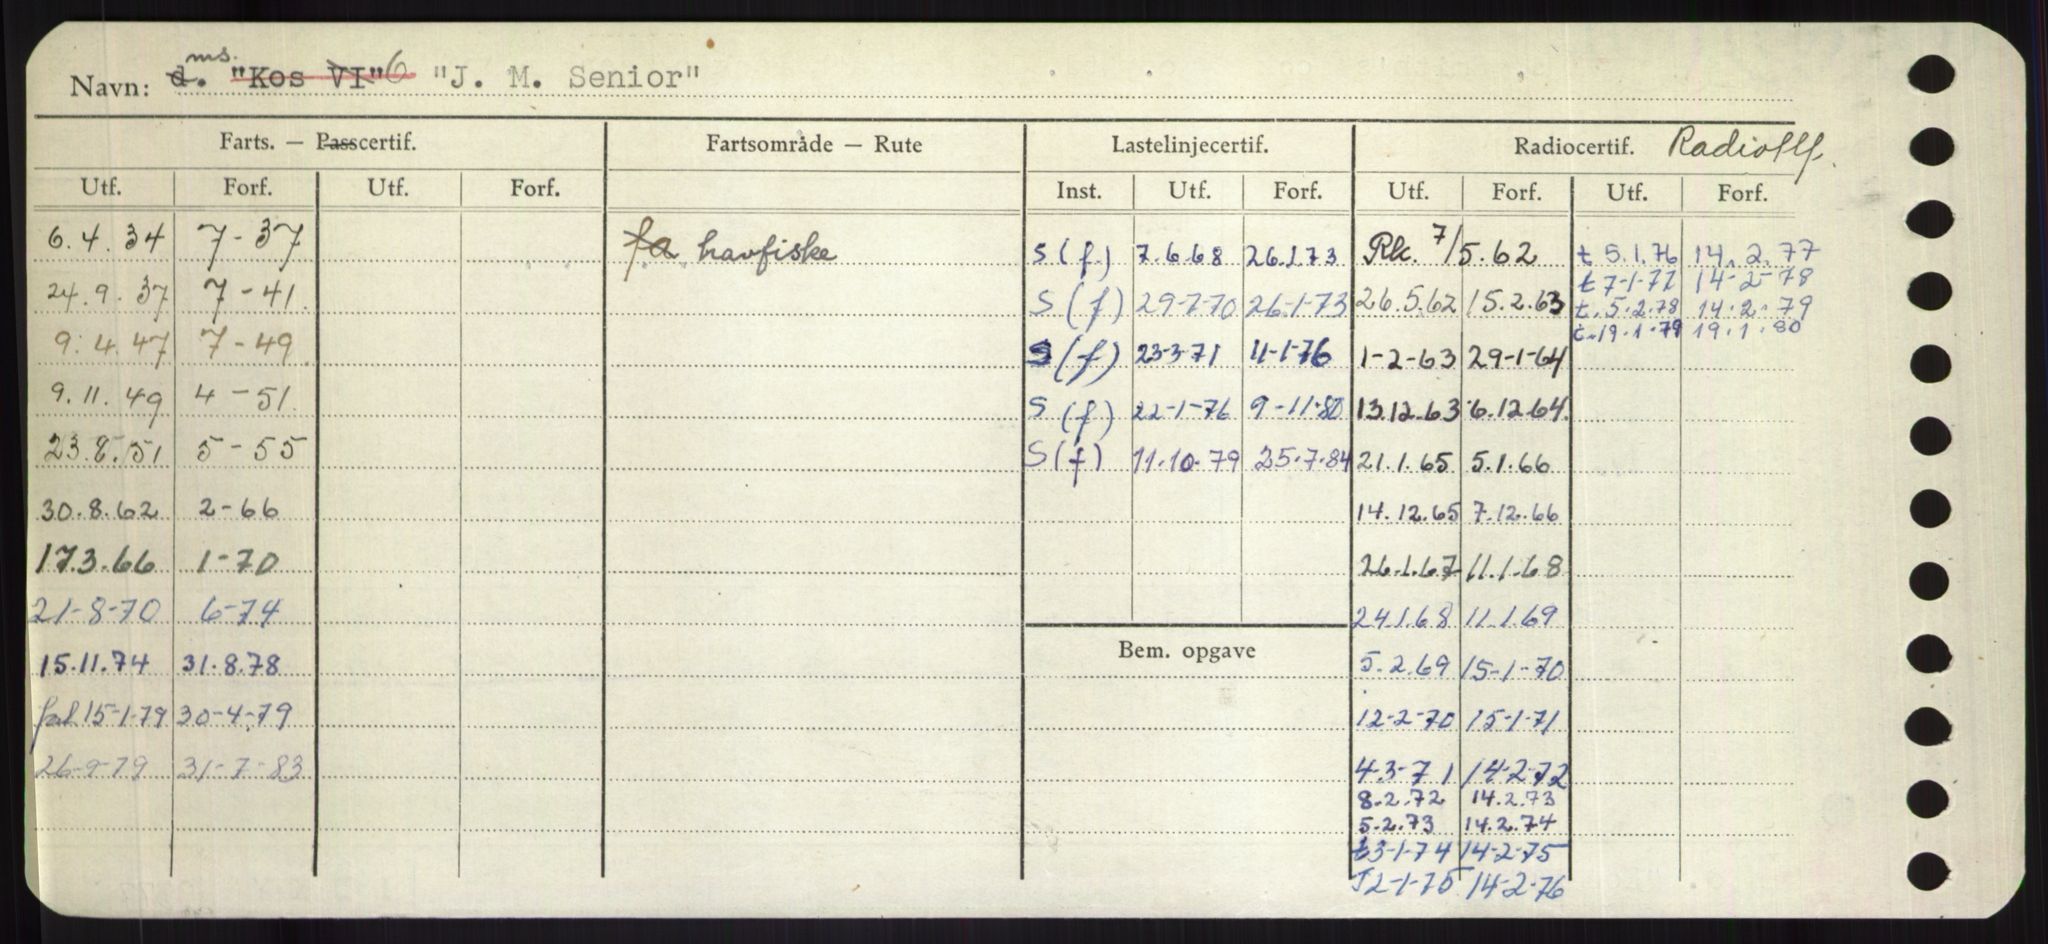 Navn: d. ms. "Kos VI" 6 "J. M. Senior"
Farts. — Passcertif. Fartsområde — Rute Lastelinjecertif. Radiocertif. Radiotlf.
Utf. Forf. Utf. Forf. Inst. Utf. Forf. Utf. Forf. Utf. Forf.
6.4.34 7-37 fa havfiske S (f) 7.6.68 26.1.73 Rk. 7/5.62 t 5.1.76 14.2.77
t 7-1-77 14-2-78
24.9.37 7-41 S (f) 29-7-70 26-1-73 26.5.62 15.2.63 t.5.2.78 14.2.79
t.19.1.79 19.1.80
9.4.47 7-49 S (f) 23-3-71 11-1-76 1-2-63 29-1-64
9.11.49 4-51 S (f) 22-1-76 9-11-80 13.12.63 6.12.64
23.8.51 5-55 S (f) 11.10.79 25.7.84 21.1.65 5.1.66
30.8.62 2-66 14.12.65 7.12.66
17.3.66 1-70 26.1.67 11.1.68
21-8-70 6-74 24.1.68 11.1.69
Bem. opgave
15.11.74 31.8.78 5.2.69 15-1-70
15-1-79 30-4-79 12-2-70 15-1-71
26-9-79 31-7-83 4-3-71 14-2-72
8.2.72 14.2.73
5.2.73 14.2.74
t3-1-74 14-2-75
T2-1-75 14-2-76